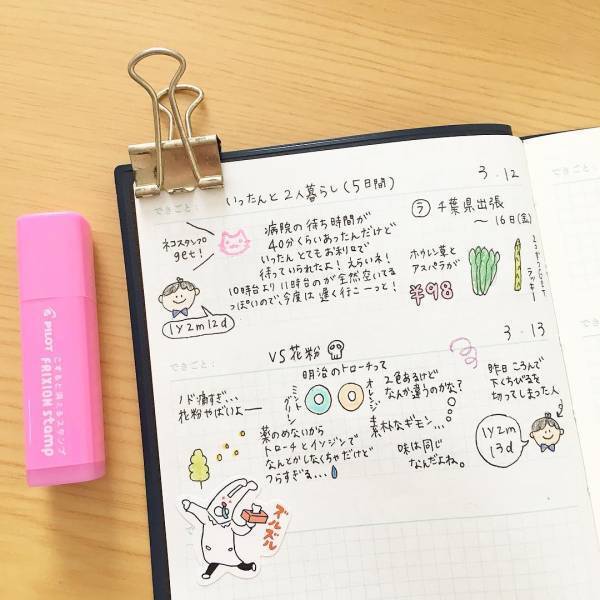 できごと：
いったんと2人暮らし(5日間)
3.12
ネコスタンプ
get!
病院の待ち時間が
40分くらいあったんだけど
いったんとてもお利口で
待っていられたよ！えらいネ！
10時台より11時台のが全然空いてる
っぽいので、今度は遅く行こーっと！
1y2m12d
千葉県出張
〜16日(金)
ホウレン草と
アスパラが
¥98
ラッキー
できごと：
VS花粉
3.13
ノド痛すぎ…
花粉やばいよー
明治のトローチって
ミントグリーン
オレンジ
2色あるけど
なんか違うのかな？
素朴なギモン…
味は同じ
なんだよね。
薬のめないから
トローチとイソジンで
なんとかしなくちゃだけど
つらすぎる…
昨日ころんで
下くちびるを
切ってしまった人
1y2m
13d
ズルズル
PILOT
こすると消えるスタンプ
FRIXION stamp